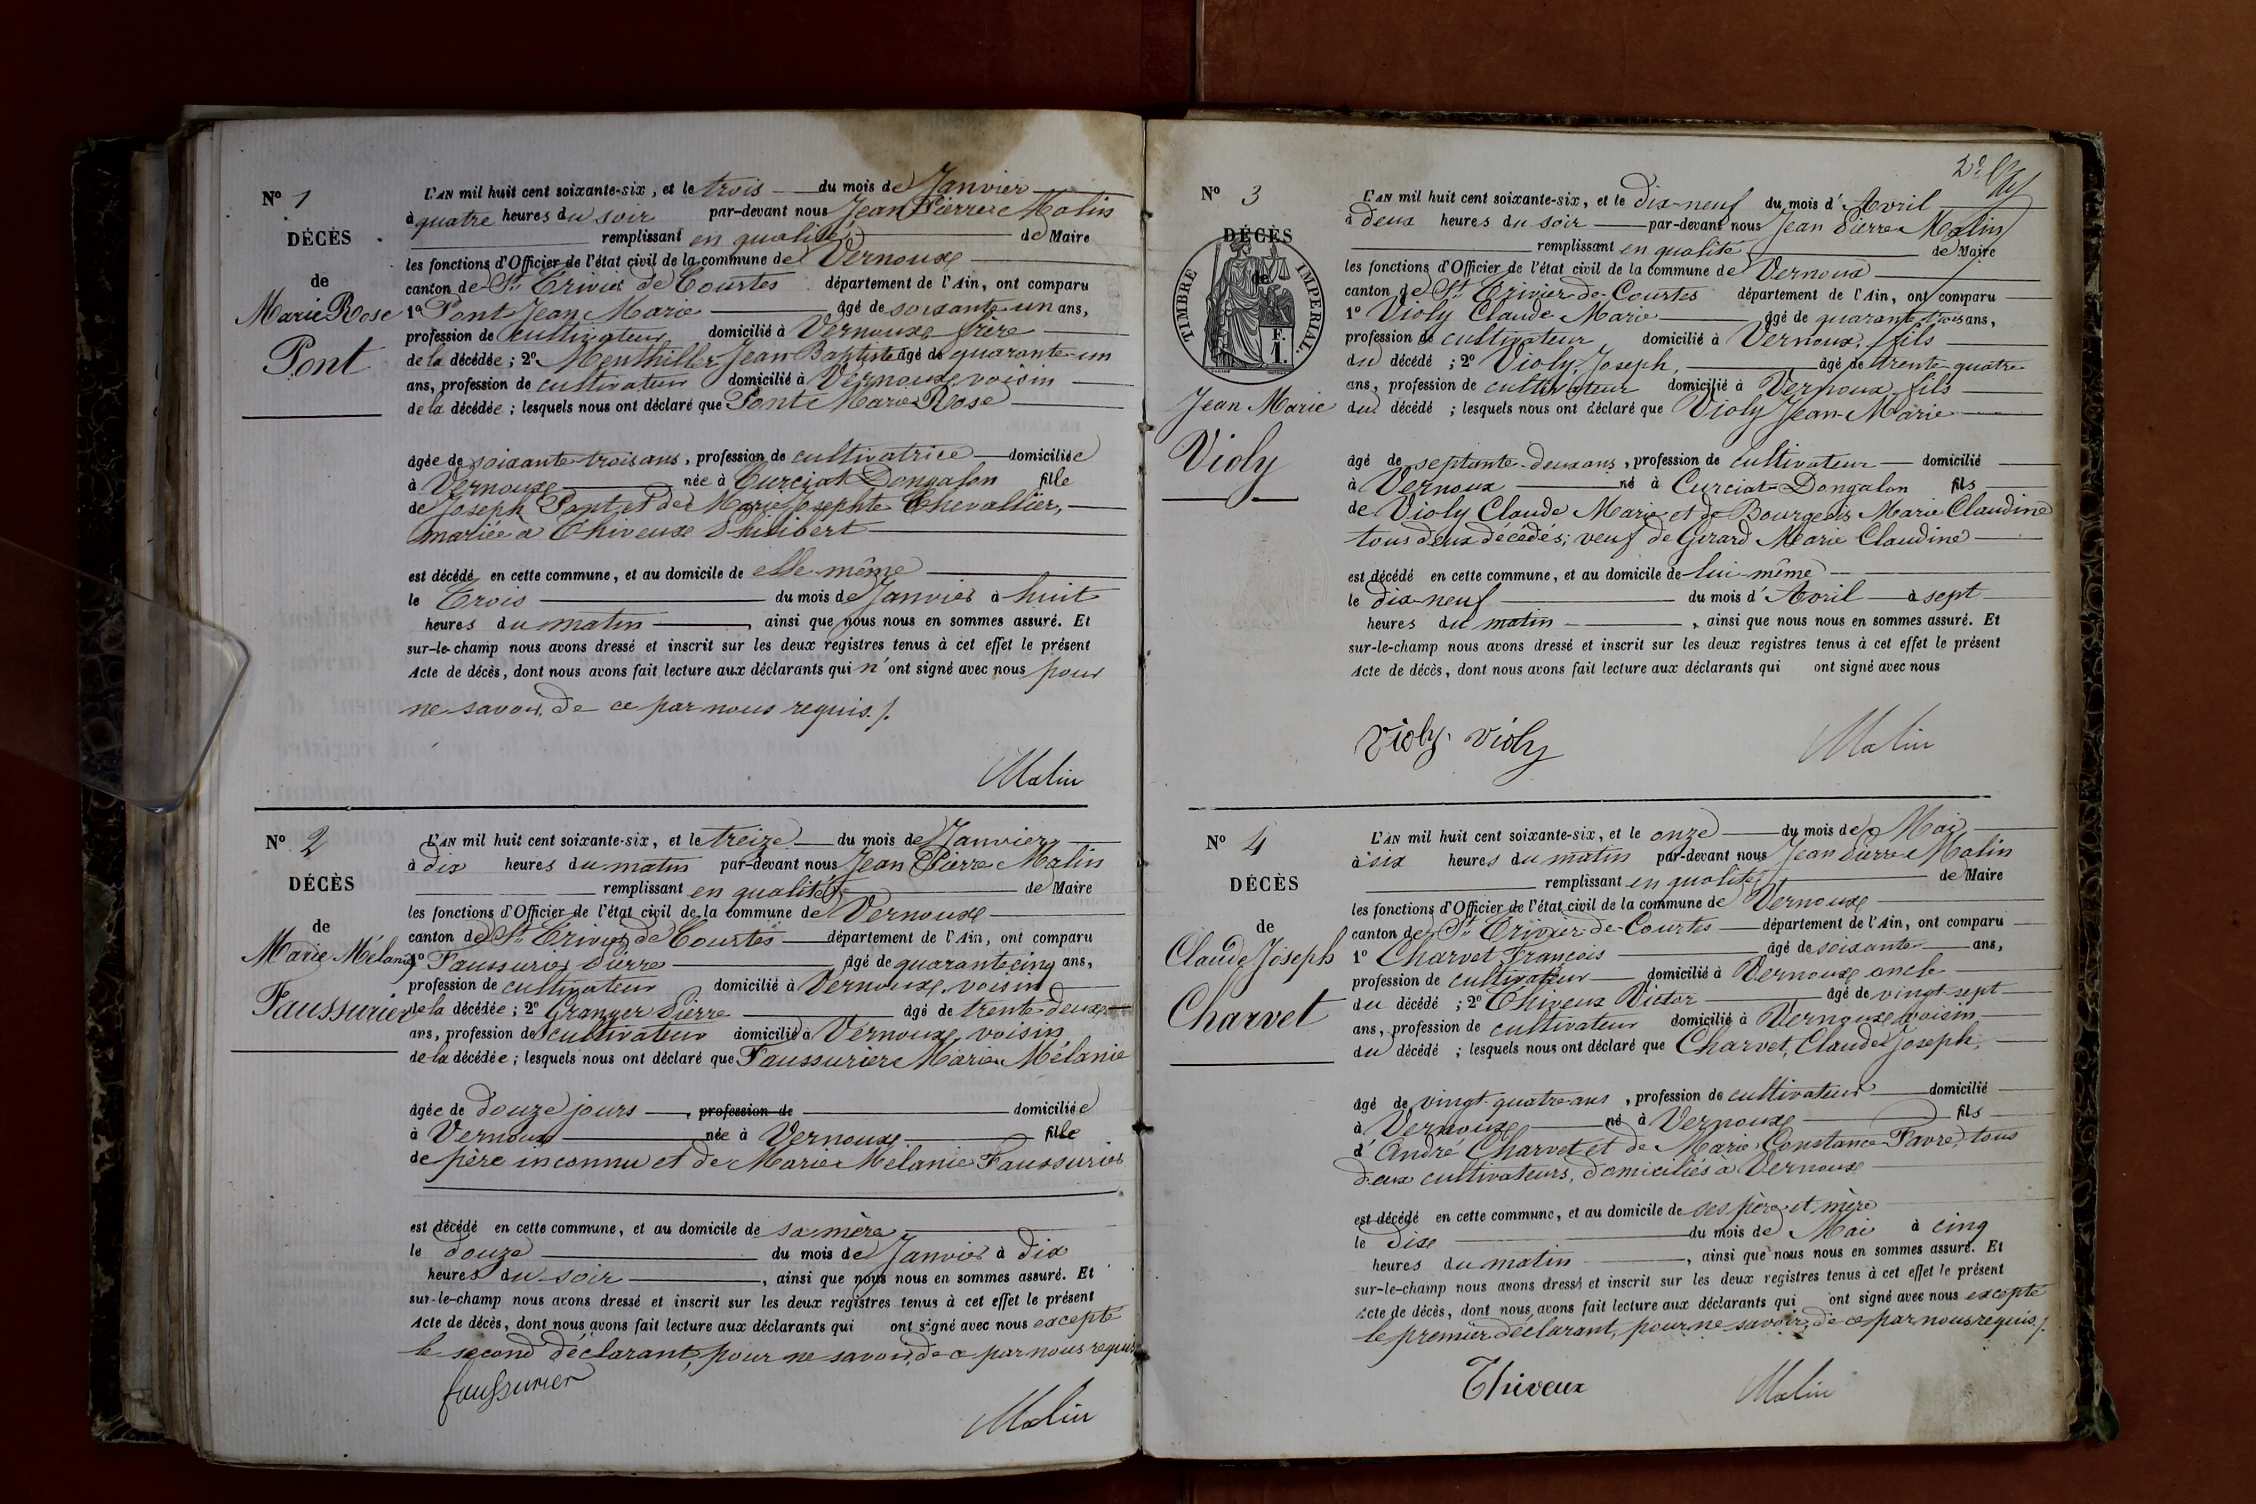 Nº 1
DÉCÈS
de
Marie Rose
Pont
L'AN mil huit cent soixante-six, et le trois du mois de Janvier
à quatre heures du soir par-devant nous Jean Pierre Malin
remplissant en qualité de Maire
les fonctions d'Officier de l'état civil de la commune de Vernoux
canton de St Trivier de Courtes département de l'Ain, ont comparu
1º Pont Jean Marie âgé de soixante un ans,
profession de cultivateur domicilié à Vernoux, frère
de la décédée; 2º Menthiller Jean Baptiste âgé de quarante-un
ans, profession de cultivateur domicilié à Vernoux, voisin
de la décédée; lesquels nous ont déclaré que Pont Marie Rose
âgée de soixante-trois ans, profession de cultivatrice domiciliée
à Vernoux née à Curciat Dongalon fille
de Joseph Pont et de Marie Josephte Chevallier,
mariée à Thiveux Philibert
est décédé en cette commune, et au domicile de elle-même
le Trois du mois de Janvier à huit
heures du matin, ainsi que nous nous en sommes assuré. Et
sur-le-champ nous avons dressé et inscrit sur les deux registres tenus à cet effet le présent
Acte de décès, dont nous avons fait lecture aux déclarants qui n'ont signé avec nous pour
ne savoir, de ce par nous requis ./.
Malin
Nº 2
DÉCÈS
de
Marie Mélanie
Faussurier
L'AN mil huit cent soixante-six, et le treize du mois de Janvier
à dix heures du matin par-devant nous Jean Pierre Malin
remplissant en qualité de Maire
les fonctions d'Officier de l'état civil de la commune de Vernoux
canton de St Trivier de Courtes département de l'Ain, ont comparu
1º Faussurier Pierre âgé de quarante cinq ans,
profession de cultivateur domicilié à Vernoux, voisin
de la décédée; 2º Granger Pierre âgé de trente-deux
ans, profession de cultivateur domicilié à Vernoux, voisin
de la décédée; lesquels nous ont déclaré que Faussurier Marie Mélanie
âgée de douze jours, profession de domiciliée
à Vernoux née à Vernoux fille
de père inconnu et de Marie Mélanie Faussurier
est décédé en cette commune, et au domicile de sa mère
le douze du mois de Janvier à dix
heures du soir, ainsi que nous nous en sommes assuré. Et
sur-le-champ nous avons dressé et inscrit sur les deux registres tenus à cet effet le présent
Acte de décès, dont nous avons fait lecture aux déclarants qui ont signé avec nous excepté
le second déclarant, pour ne savoir, de ce par nous requis
faussurier
Malin
Nº 3
DÉCÈS
de
TIMBRE IMPÉRIAL.
F.
1.
Jean Marie
Violy
L'AN mil huit cent soixante-six, et le Dix-neuf du mois d'Avril
à deux heures du soir par-devant nous Jean Pierre Malin
remplissant en qualité de Maire
les fonctions d'Officier de l'état civil de la commune de Vernoux
canton de St Trivier-de-Courtes département de l'Ain, ont comparu
1º Violy Claude Marie âgé de quarante trois ans,
profession de cultivateur domicilié à Vernoux, fils
du décédé; 2º Violy, Joseph, âgé de trente-quatre
ans, profession de cultivateur domicilié à Vernoux, fils
du décédé; lesquels nous ont déclaré que Violy Jean-Marie
âgé de septante-deux ans, profession de cultivateur domicilié
à Vernoux né à Curciat-Dongalon fils
de Violy Claude Marie et de Bourgeois Marie Claudine
tous deux décédés; veuf de Girard Marie Claudine
est décédé en cette commune, et au domicile de lui-même
le dix-neuf du mois d'Avril à sept
heures du matin, ainsi que nous nous en sommes assuré. Et
sur-le-champ nous avons dressé et inscrit sur les deux registres tenus à cet effet le présent
Acte de décès, dont nous avons fait lecture aux déclarants qui ont signé avec nous
Violy. Violy
Malin
Nº 4
DÉCÈS
de
Claude Joseph
Charvet
L'AN mil huit cent soixante-six, et le onze du mois de Mai
à six heures du matin par-devant nous Jean Pierre Malin
remplissant en qualité de Maire
les fonctions d'Officier de l'état civil de la commune de Vernoux
canton de St Trivier-de-Courtes département de l'Ain, ont comparu
1º Charvet François âgé de soixante ans,
profession de cultivateur domicilié à Vernoux oncle
du décédé; 2º Thiveux Victor âgé de vingt-sept
ans, profession de cultivateur domicilié à Vernoux, voisin
du décédé; lesquels nous ont déclaré que Charvet, Claude Joseph,
âgé de vingt-quatre ans, profession de cultivateur domicilié
à Vernoux né à Vernoux fils
d'André Charvet et de Marie Constance Favre, tous
deux cultivateurs, domiciliés à Vernoux
est décédé en cette commune, et au domicile de ses père et mère
le Dix du mois de Mai à cinq
heures du matin, ainsi que nous nous en sommes assuré. Et
sur-le-champ nous avons dressé et inscrit sur les deux registres tenus à cet effet le présent
Acte de décès, dont nous avons fait lecture aux déclarants qui ont signé avec nous excepté
le premier déclarant, pour ne savoir, de ce par nous requis ./.
Thiveux
Malin